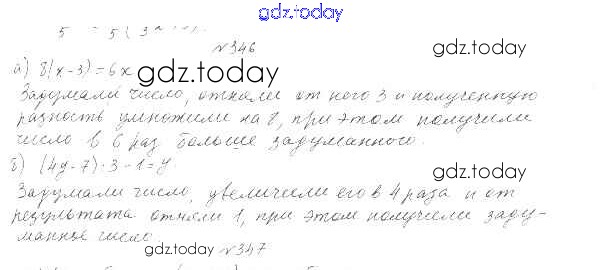 gdz.today
№346
gdz.today
а) 8(x-3)=6x gdz.today
Задумали число, отняли от него 3 и полученную
разность умножили на 8, при этом получили
число в 6 раз больше задуманного.
б) (4y-7)·3-1=y gdz.today
Задумали число, увеличили его в 4 раза и от
результата отняли 1, при этом получили заду-
манное число
gdz.today №347
gdz.today